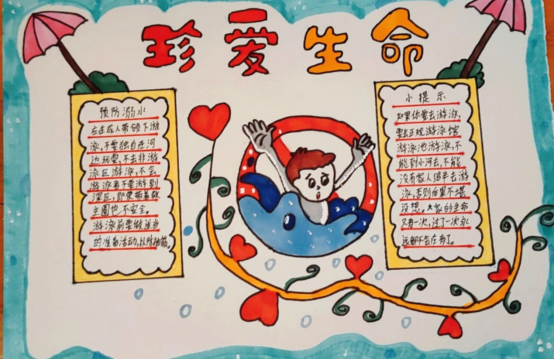 珍爱生命
预防溺水
在大人带领下游
泳,不要独自去河
边玩耍,不去非游
泳区游泳,不会
游泳者不要游到
深区,即使带着救
生圈也不安全。
游泳前要做适当
的准备活动,以防抽筋。
小提示
如果你要去游泳,
要去正规游泳馆
游泳池游泳,不
能到小河去,不能
没有家人陪伴去游
泳,否则后果不堪
设想,大家的生命
只有一次,过了一次永
远都不会在有了。